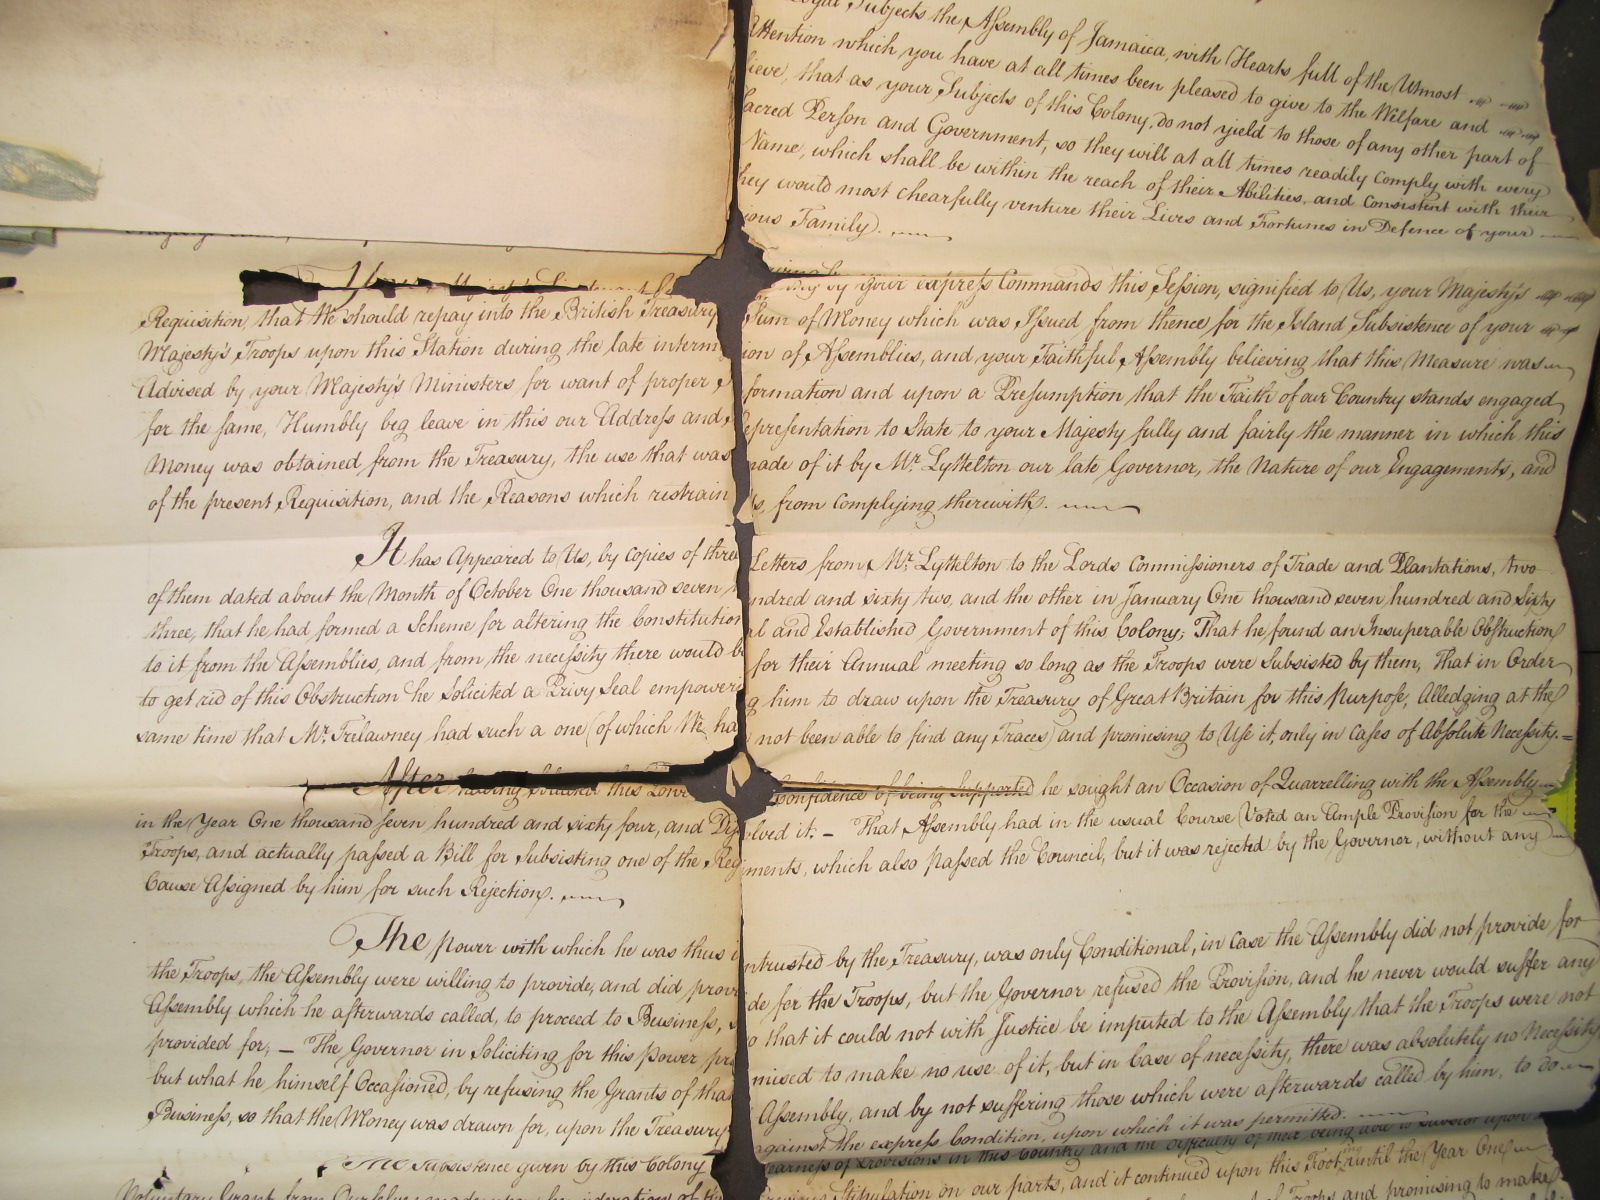 Subjects the Assembly of Jamaica, with Hearts full of the Utmost
Attention which you have at all times been pleased to give to the Welfare and
that as your Subjects of this Colony, do not yield to those of any other part of
Sacred Person and Government, so they will at all times readily Comply with every
Name, which shall be within the reach of their Abilities, and Consistent with their
they would most chearfully venture their Lives and Fortunes in Defence of your
Family.
by Your express Commands this Session, signified to Us, your Majesty's
Requisition, that We should repay into the British Treasury Sum of Money which was Issued from thence for the Island Subsistence of your
Majesty's Troops upon this Station during the late intermission of Assemblies, and your Faithful Assembly believing that this Measure was
Advised by your Majesty's Ministers for want of proper Information and upon a Presumption that the Faith of our Country stands engaged
for the same, Humbly beg leave in this our Address and Representation to State to your Majesty fully and fairly the manner in which this
Money was obtained from the Treasury, the use that was made of it by Mr. Lyttelton our late Governor, the Nature of our Engagements, and
of the present Requisition, and the Reasons which restrain Us, from Complying therewith.
It has Appeared to Us, by Copies of three Letters from Mr. Lyttelton to the Lords Commissioners of Trade and Plantations, two
of them dated about the Month of October One thousand seven hundred and sixty two, and the other in January One thousand seven hundred and Sixty
three, that he had formed a Scheme for altering the Constitutional and Established Government of this Colony; That he found an Insuperable Obstruction
to it from the Assemblies, and from the necessity there would be for their Annual meeting so long as the Troops were Subsisted by them, That in Order
to get rid of this Obstruction he Solicited a Privy Seal empowering him to draw upon the Treasury of Great Britain for this Purpose, Alledging at the
same time that Mr. Trelawney had such a one (of which We have not been able to find any Traces) and promising to Use it, only in Cases of Absolute Necessity.=
After having obtained this Confidence of being Supported he sought an Occasion of Quarrelling with the Assembly
in the Year One thousand seven hundred and sixty four, and Dissolved it. — That Assembly had in the usual Course Voted an Ample Provision for the
Troops, and actually passed a Bill for Subsisting one of the Regiments, which also passed the Council, but it was rejected by the Governor, without any
Cause Assigned by him for such Rejection.
The power with which he was thus intrusted by the Treasury, was only Conditional, in Case the Assembly did not provide for
the Troops, the Assembly were willing to provide, and did provide for the Troops, but the Governor refused the Provision, and he never would suffer any
Assembly which he afterwards called, to proceed to Business, so that it could not with Justice be imputed to the Assembly that the Troops were not
provided for; — The Governor in Soliciting for this power promised to make no use of it, but in Case of necessity, there was absolutely no Necessity
but what he himself Occasioned, by refusing the Grants of that Assembly, and by not suffering those which were afterwards called by him, to do
Business, so that the Money was drawn for, upon the Treasury against the express Condition, upon which it was permitted.
The Subsistence given by this Colony
of Provisions in this Country and the difficulty of their being able to Subsist upon
Voluntary Grant from Stipulation on our parts, and it continued upon this Foot, until the Year One
of Troops and promising to make